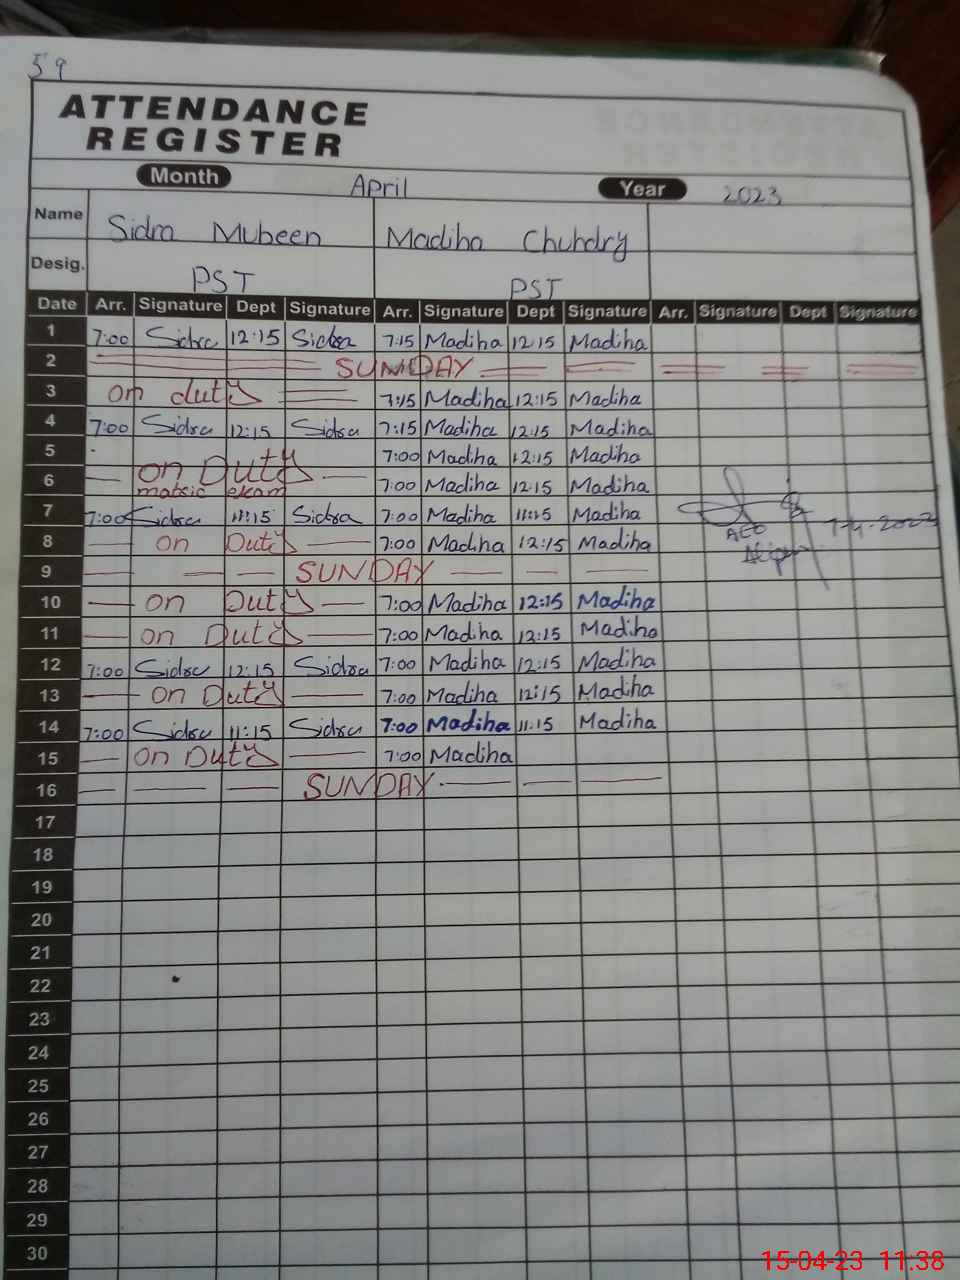 59
ATTENDANCE
REGISTER
Month April Year 2023
Name Sidra Mubeen Madiha Chuhdry
Desig. PST PST
Date Arr. Signature Dept Signature Arr. Signature Dept Signature Arr. Signature Dept Signature
1 7:00 Sidra 12:15 Sidra 7:15 Madiha 12:15 Madiha
2 SUNDAY
3 on duty 7:15 Madiha 12:15 Madiha
4 7:00 Sidra 12:15 Sidra 7:15 Madiha 12:15 Madiha
5 7:00 Madiha 12:15 Madiha
on Duty
6 matric exam 7:00 Madiha 12:15 Madiha
7 7:00 Sidra 11:15 Sidra 7:00 Madiha 11:15 Madiha 7-4-2023
AEO
8 on Duty 7:00 Madiha 12:15 Madiha
9 SUNDAY
10 on Duty 7:00 Madiha 12:15 Madiha
11 on Duty 7:00 Madiha 12:15 Madiha
12 7:00 Sidra 12:15 Sidra 7:00 Madiha 12:15 Madiha
13 on Duty 7:00 Madiha 12:15 Madiha
14 7:00 Sidra 11:15 Sidra 7:00 Madiha 11:15 Madiha
15 on Duty 7:00 Madiha
16 SUNDAY
17
18
19
20
21
22
23
24
25
26
27
28
29
30
15-04-23 11:38